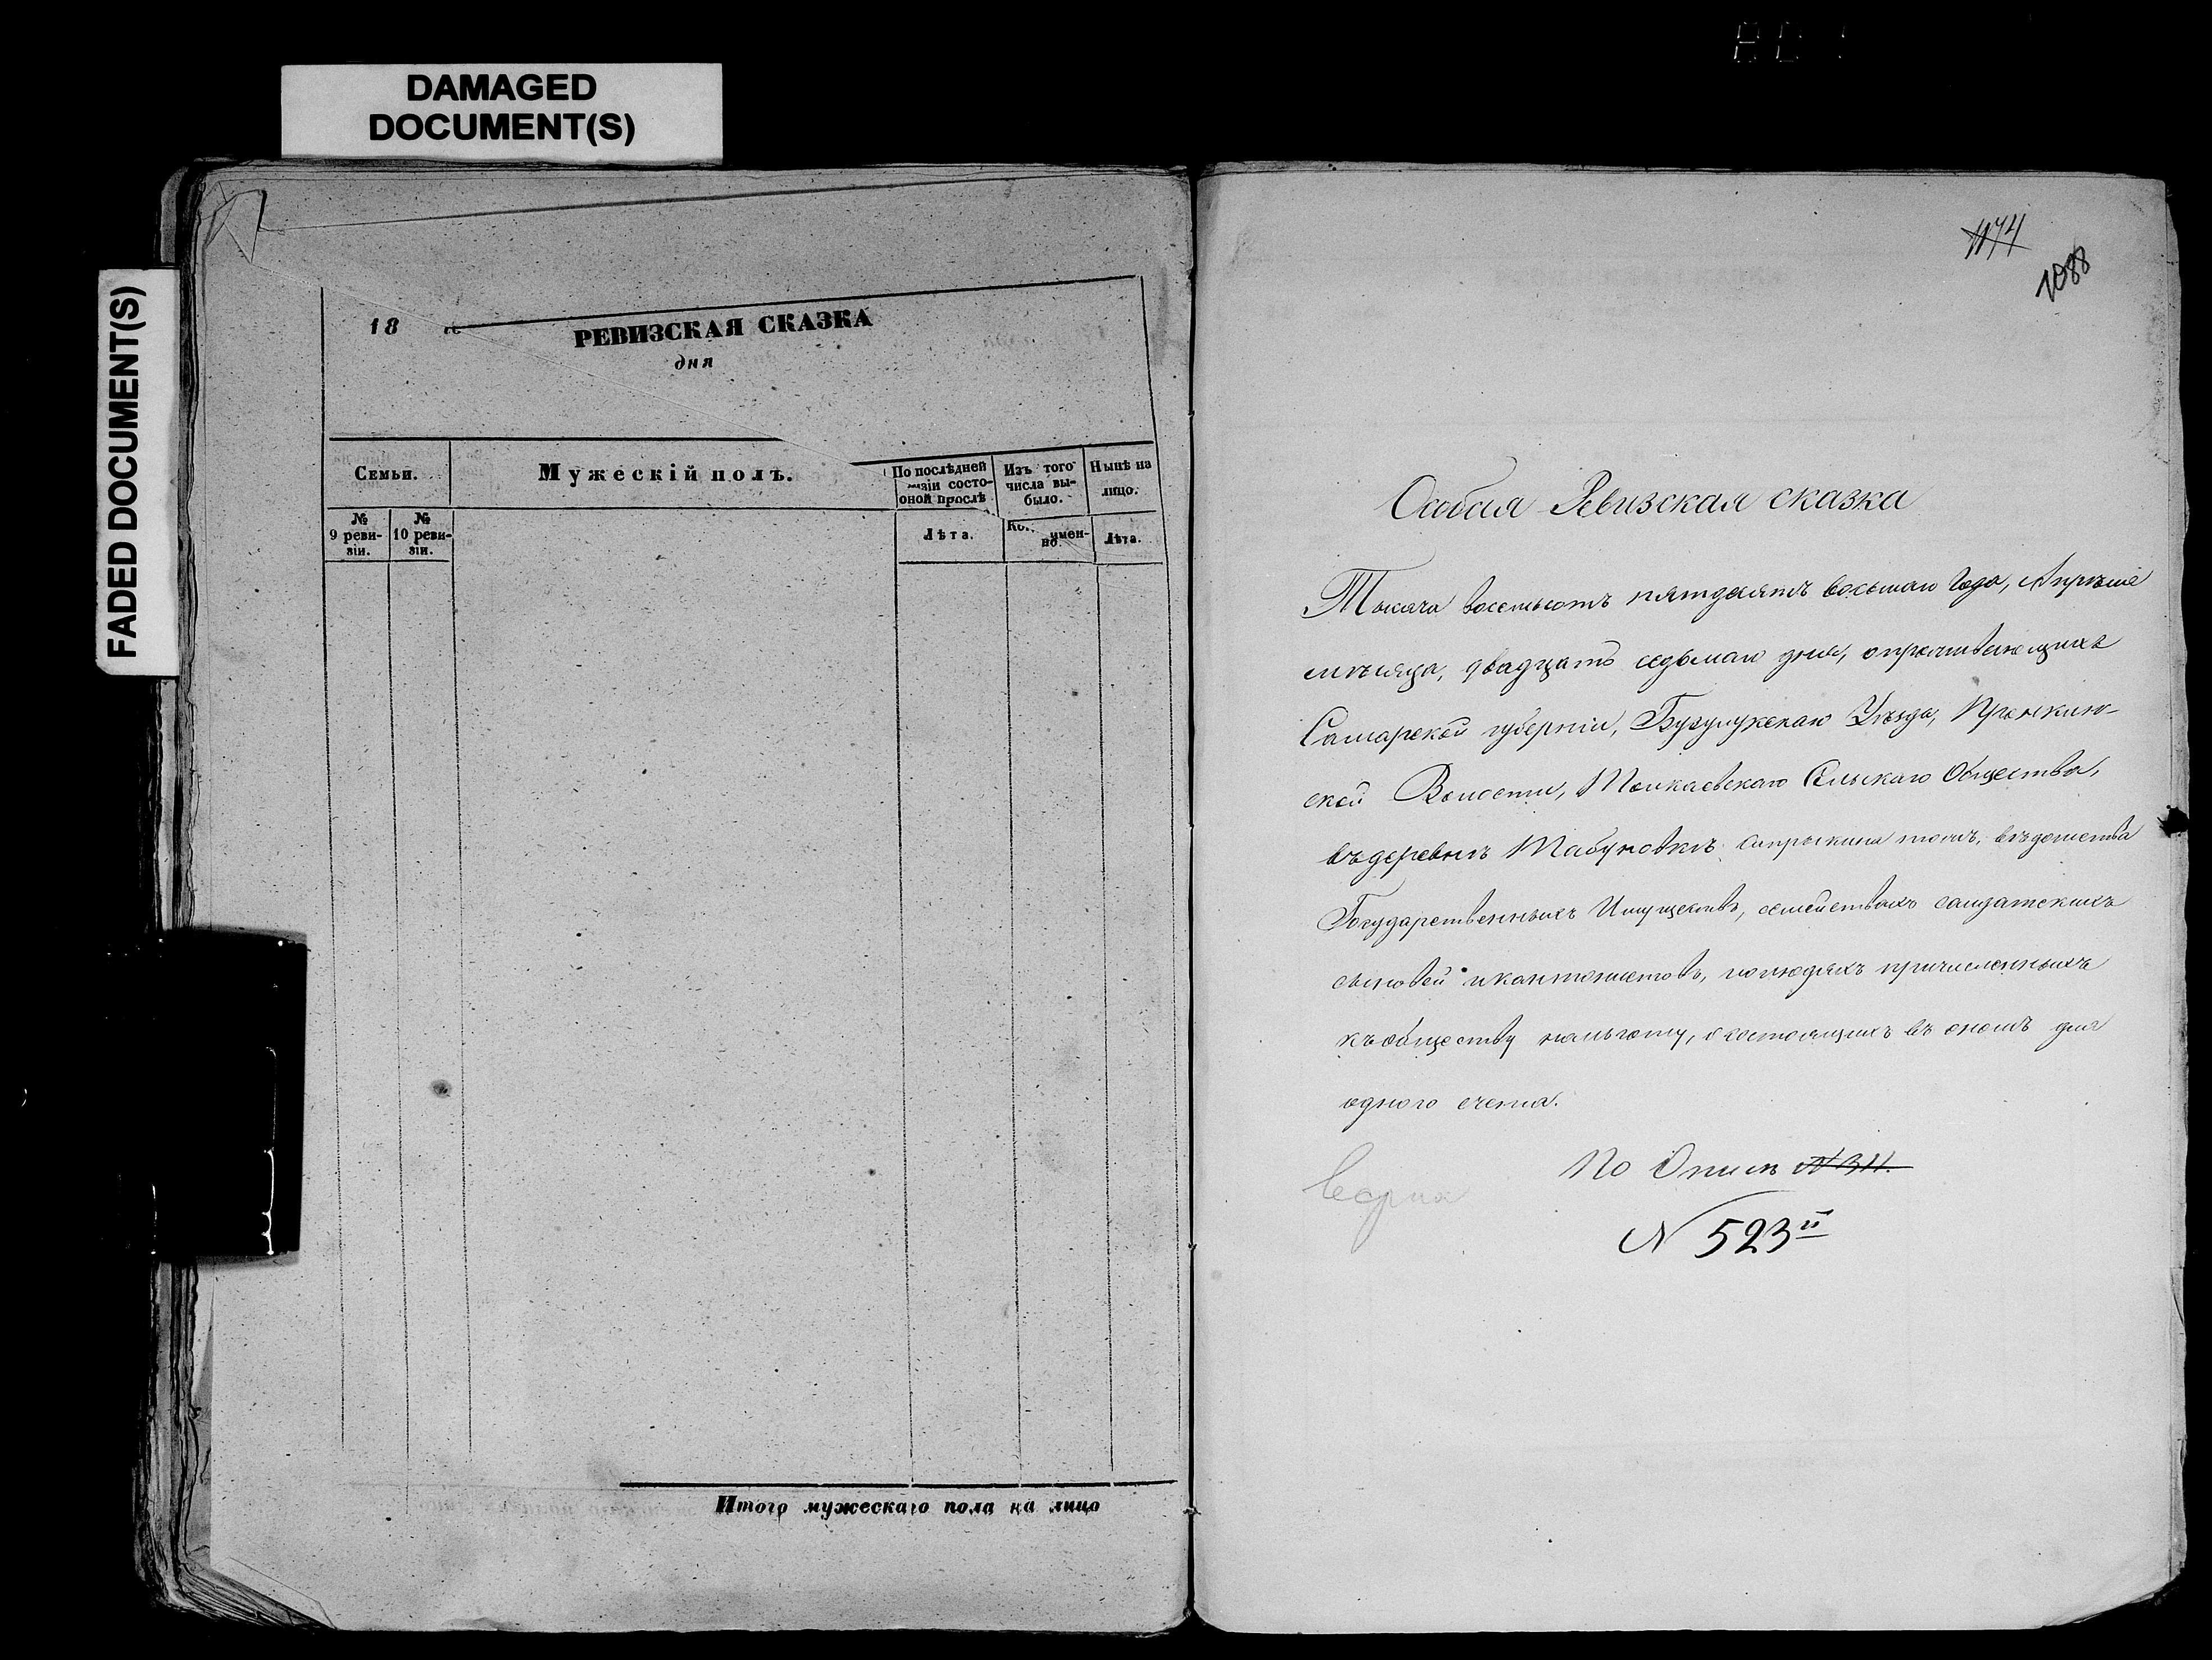 DAMAGED
DOCUMENT(S)
FADED DOCUMENT(S)
18
РЕВИЗСКАЯ СКАЗКА
дня
Семьи.
Мужескій полъ.
По послѣдней
зіи состо-
оной прослѣ
Изъ того
числа вы-
было.
Нынѣ на
лицо.
№
9 реви-
зіи.
№
10 реви-
зіи.
Лѣта.
Лѣта.
Итого мужескаго пола на лицо
1174
1088
Особая Ревизская сказка
Тысяча восемьсотъ пятдесятъ восьмаго Года, Апрѣля
мѣсяца, двадцать седьмаго дня, о проживающихъ
Самарской губерніи, Бугурусл Уѣзда,
ской Волости, Толкаевскаго Сельскаго Общества,
въ деревнѣ Табуновкѣ Сапрыкина тожъ, вѣдомства
Государственныхъ Имуществъ, семействахъ солдатскихъ
сыновей и кантонистовъ, и о людяхъ причисленныхъ
къ обществу на льготу, и состоящихъ въ ономъ для
одного счета.
По Описи № 311.
верна
№ 523й